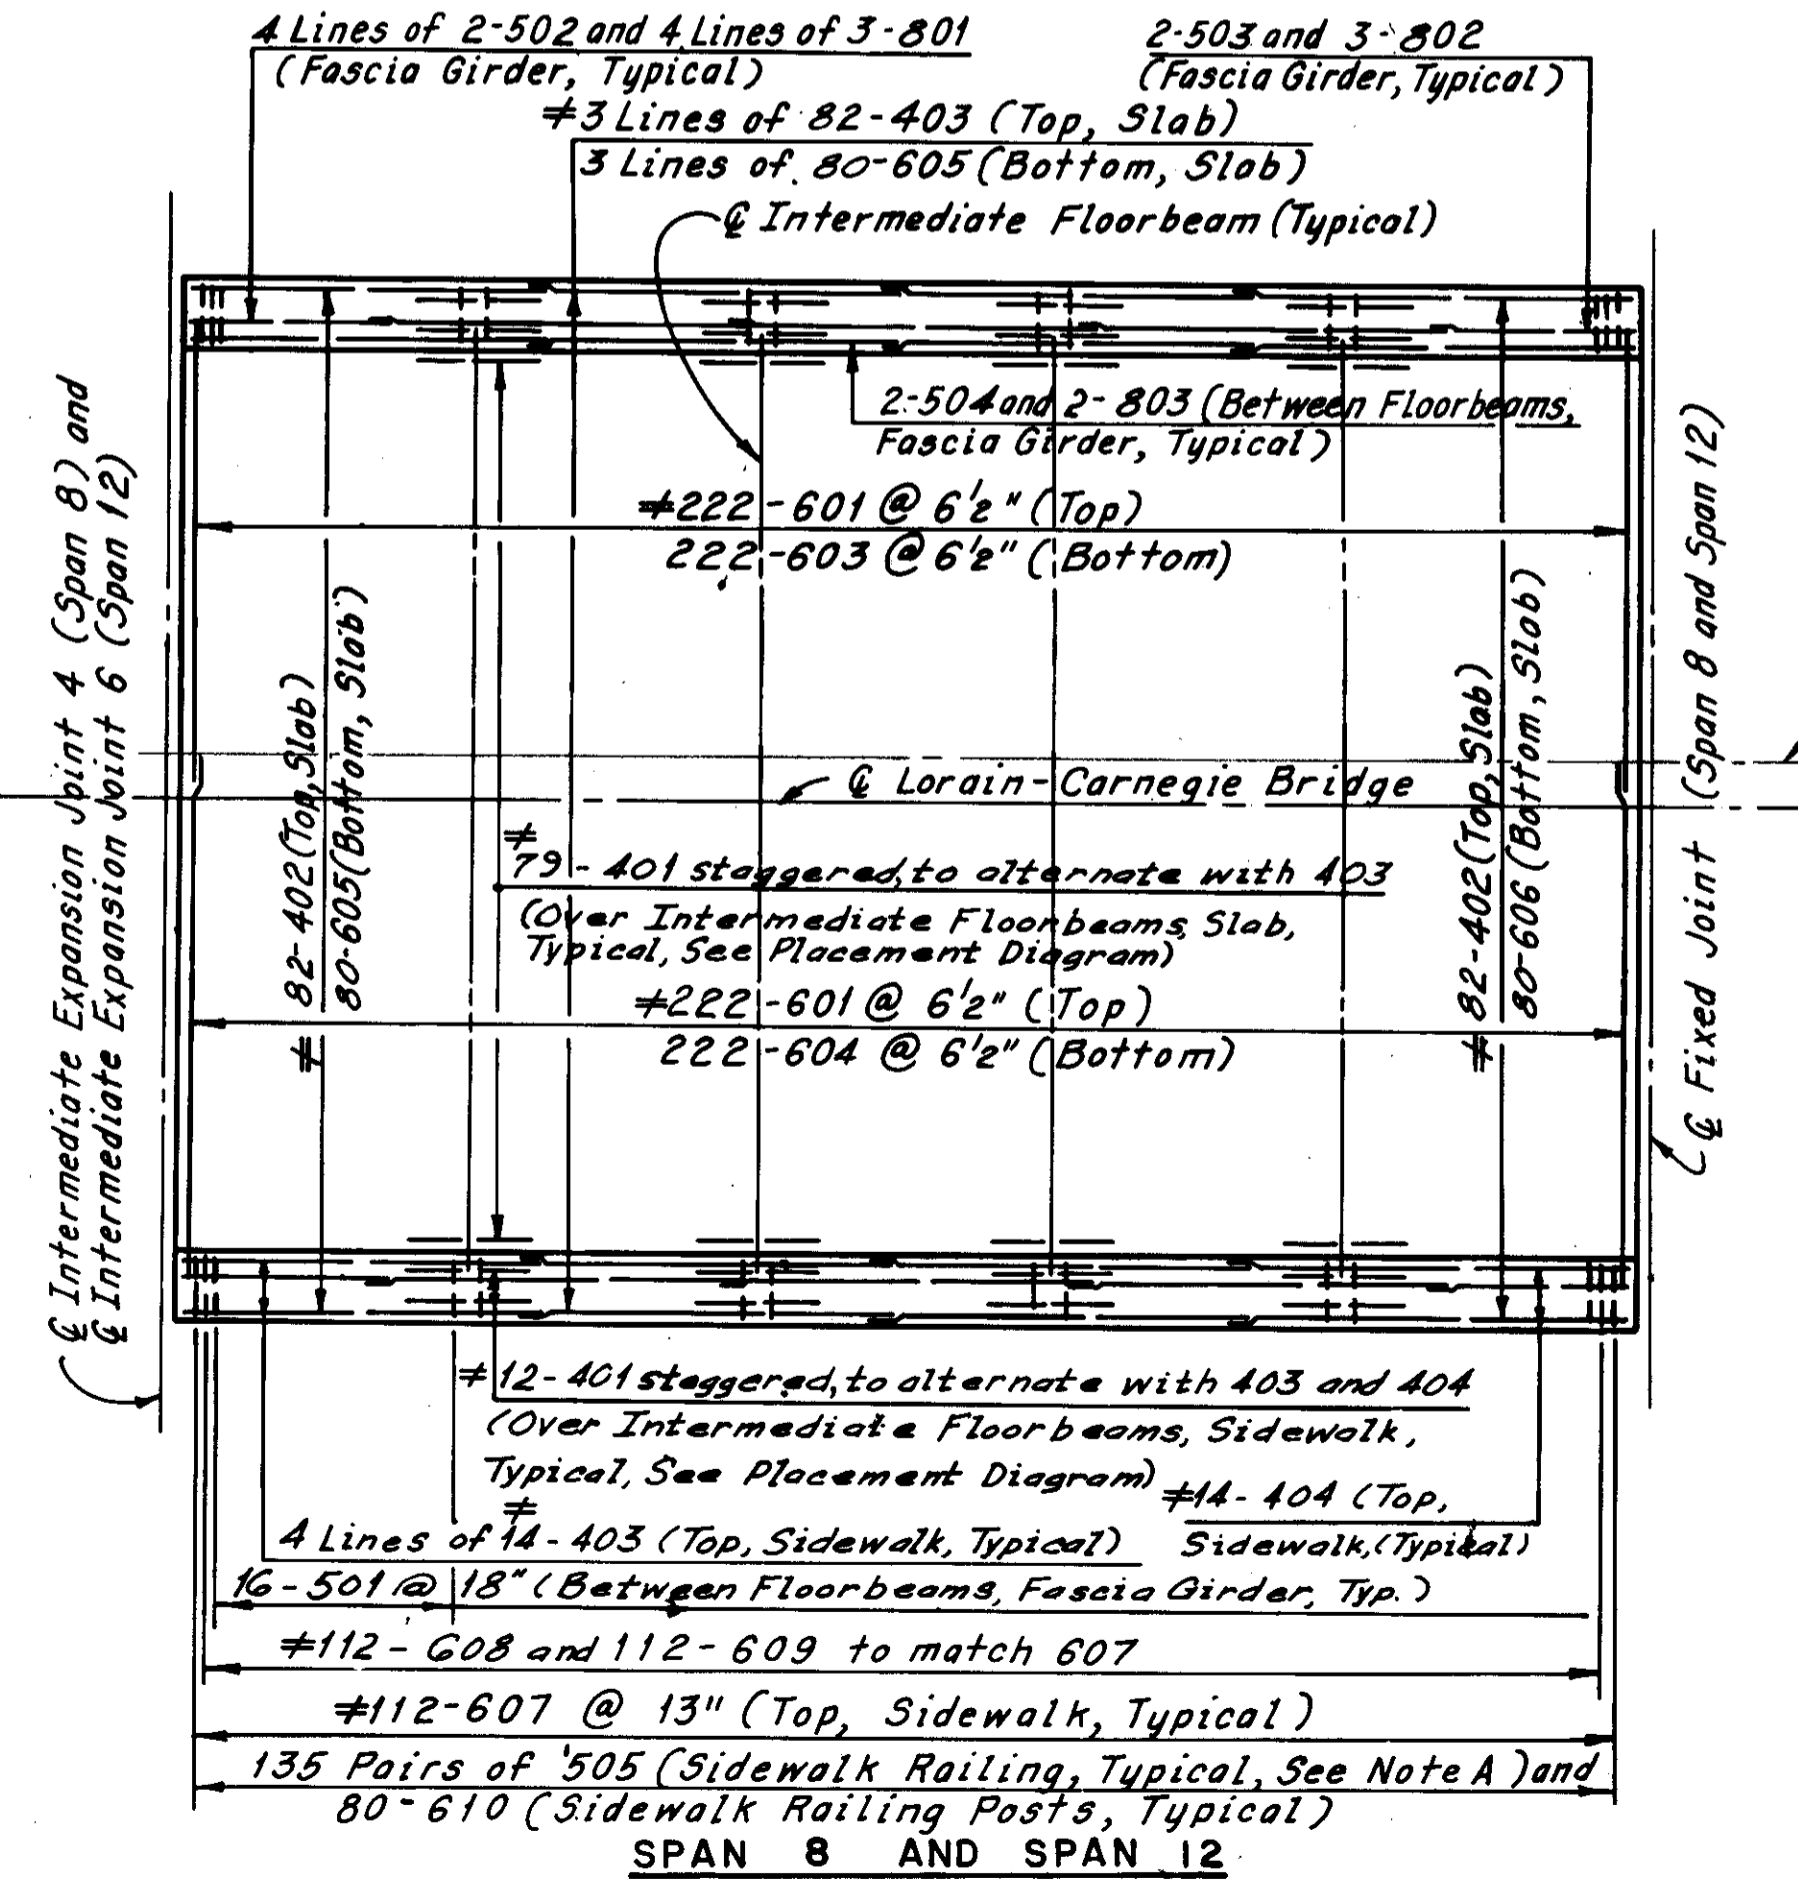 4 Lines of 2-502 and 4 Lines of 3-801
(Fascia Girder, Typical)
2-503 and 3-802
(Fascia Girder, Typical)
≠3 Lines of 82-403 (Top, Slab)
3 Lines of 80-605 (Bottom, Slab)
℄ Intermediate Floorbeam (Typical)
2-504 and 2-803 (Between Floorbeams,
Fascia Girder, Typical)
≠222-601 @ 6½" (Top)
222-603 @ 6½" (Bottom)
℄ Intermediate Expansion Joint 4 (Span 8) and
℄ Intermediate Expansion Joint 6 (Span 12)
≠ 82-402 (Top, Slab)
80-605 (Bottom, Slab)
℄ Lorain-Carnegie Bridge
≠ 82-402 (Top, Slab)
80-606 (Bottom, Slab)
℄ Fixed Joint (Span 8 and Span 12)
≠
79-401 staggered, to alternate with 403
(Over Intermediate Floorbeams, Slab,
Typical, See Placement Diagram)
≠222-601 @ 6½" (Top)
222-604 @ 6½" (Bottom)
≠12-401 staggered, to alternate with 403 and 404
(Over Intermediate Floorbeams, Sidewalk,
Typical, See Placement Diagram)
≠14-404 (Top,
Sidewalk, (Typical)
≠
4 Lines of 14-403 (Top, Sidewalk, Typical)
16-501 @ 18" (Between Floorbeams, Fascia Girder, Typ.)
≠112-608 and 112-609 to match 607
≠112-607 @ 13" (Top, Sidewalk, Typical)
135 Pairs of 505 (Sidewalk Railing, Typical, See Note A) and
80-610 (Sidewalk Railing Posts, Typical)
SPAN 8 AND SPAN 12